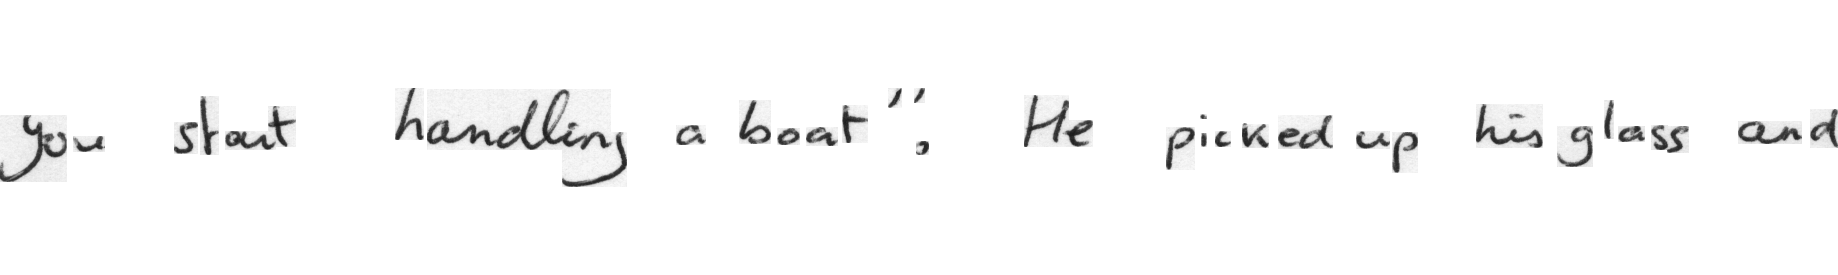 you start handling a boat". He picked up his glass and